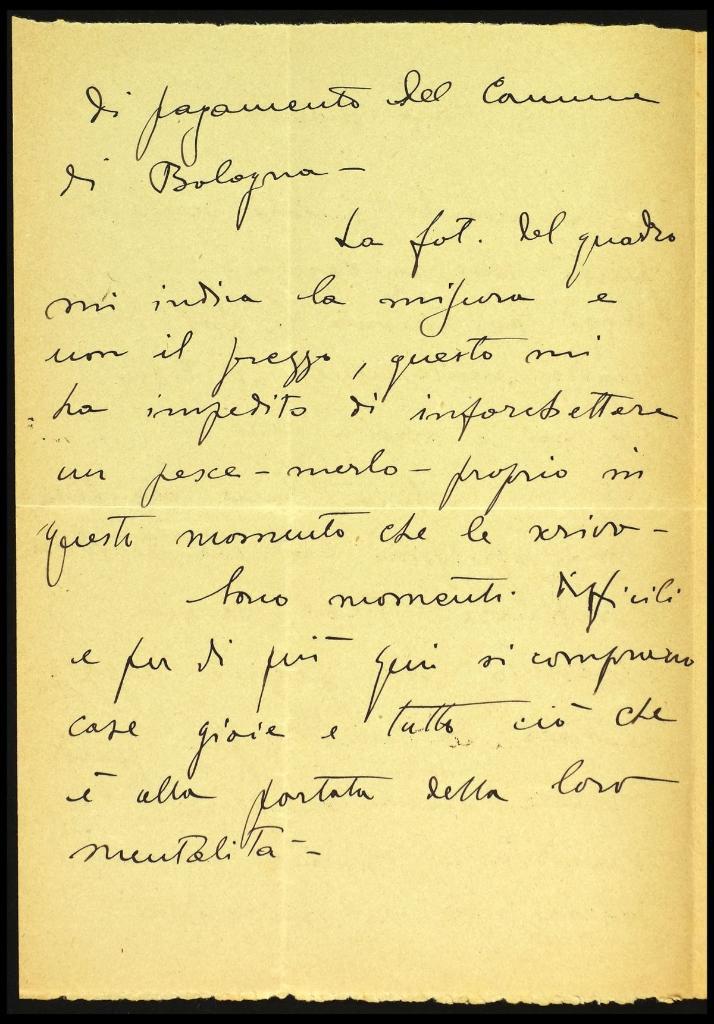 di pagamento del Comune
di Bologna -
La fot. del quadro
mi indica la misura e
non il prezzo, questo mi
ha impedito di inforchettare
un pesce - merlo - proprio in
questo momento che le scrivo -
Sono momenti difficili
e per di più qui si comprano
case gioie e tutto ciò che
è alla portata della loro
mentalità -